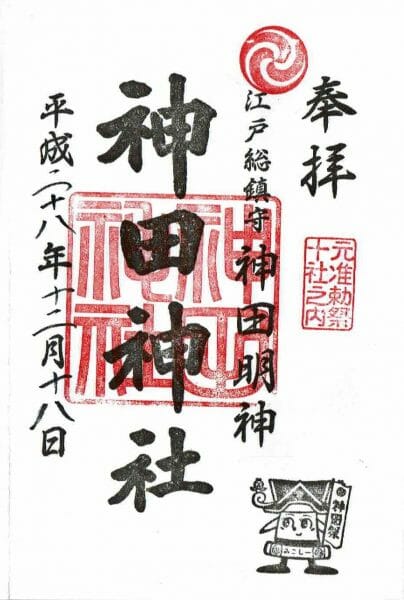 奉拝
元准勅祭
十社之内
江戸総鎮守
神田明神
神田神社
平成二十八年十二月十八日
神田祭
みこしー